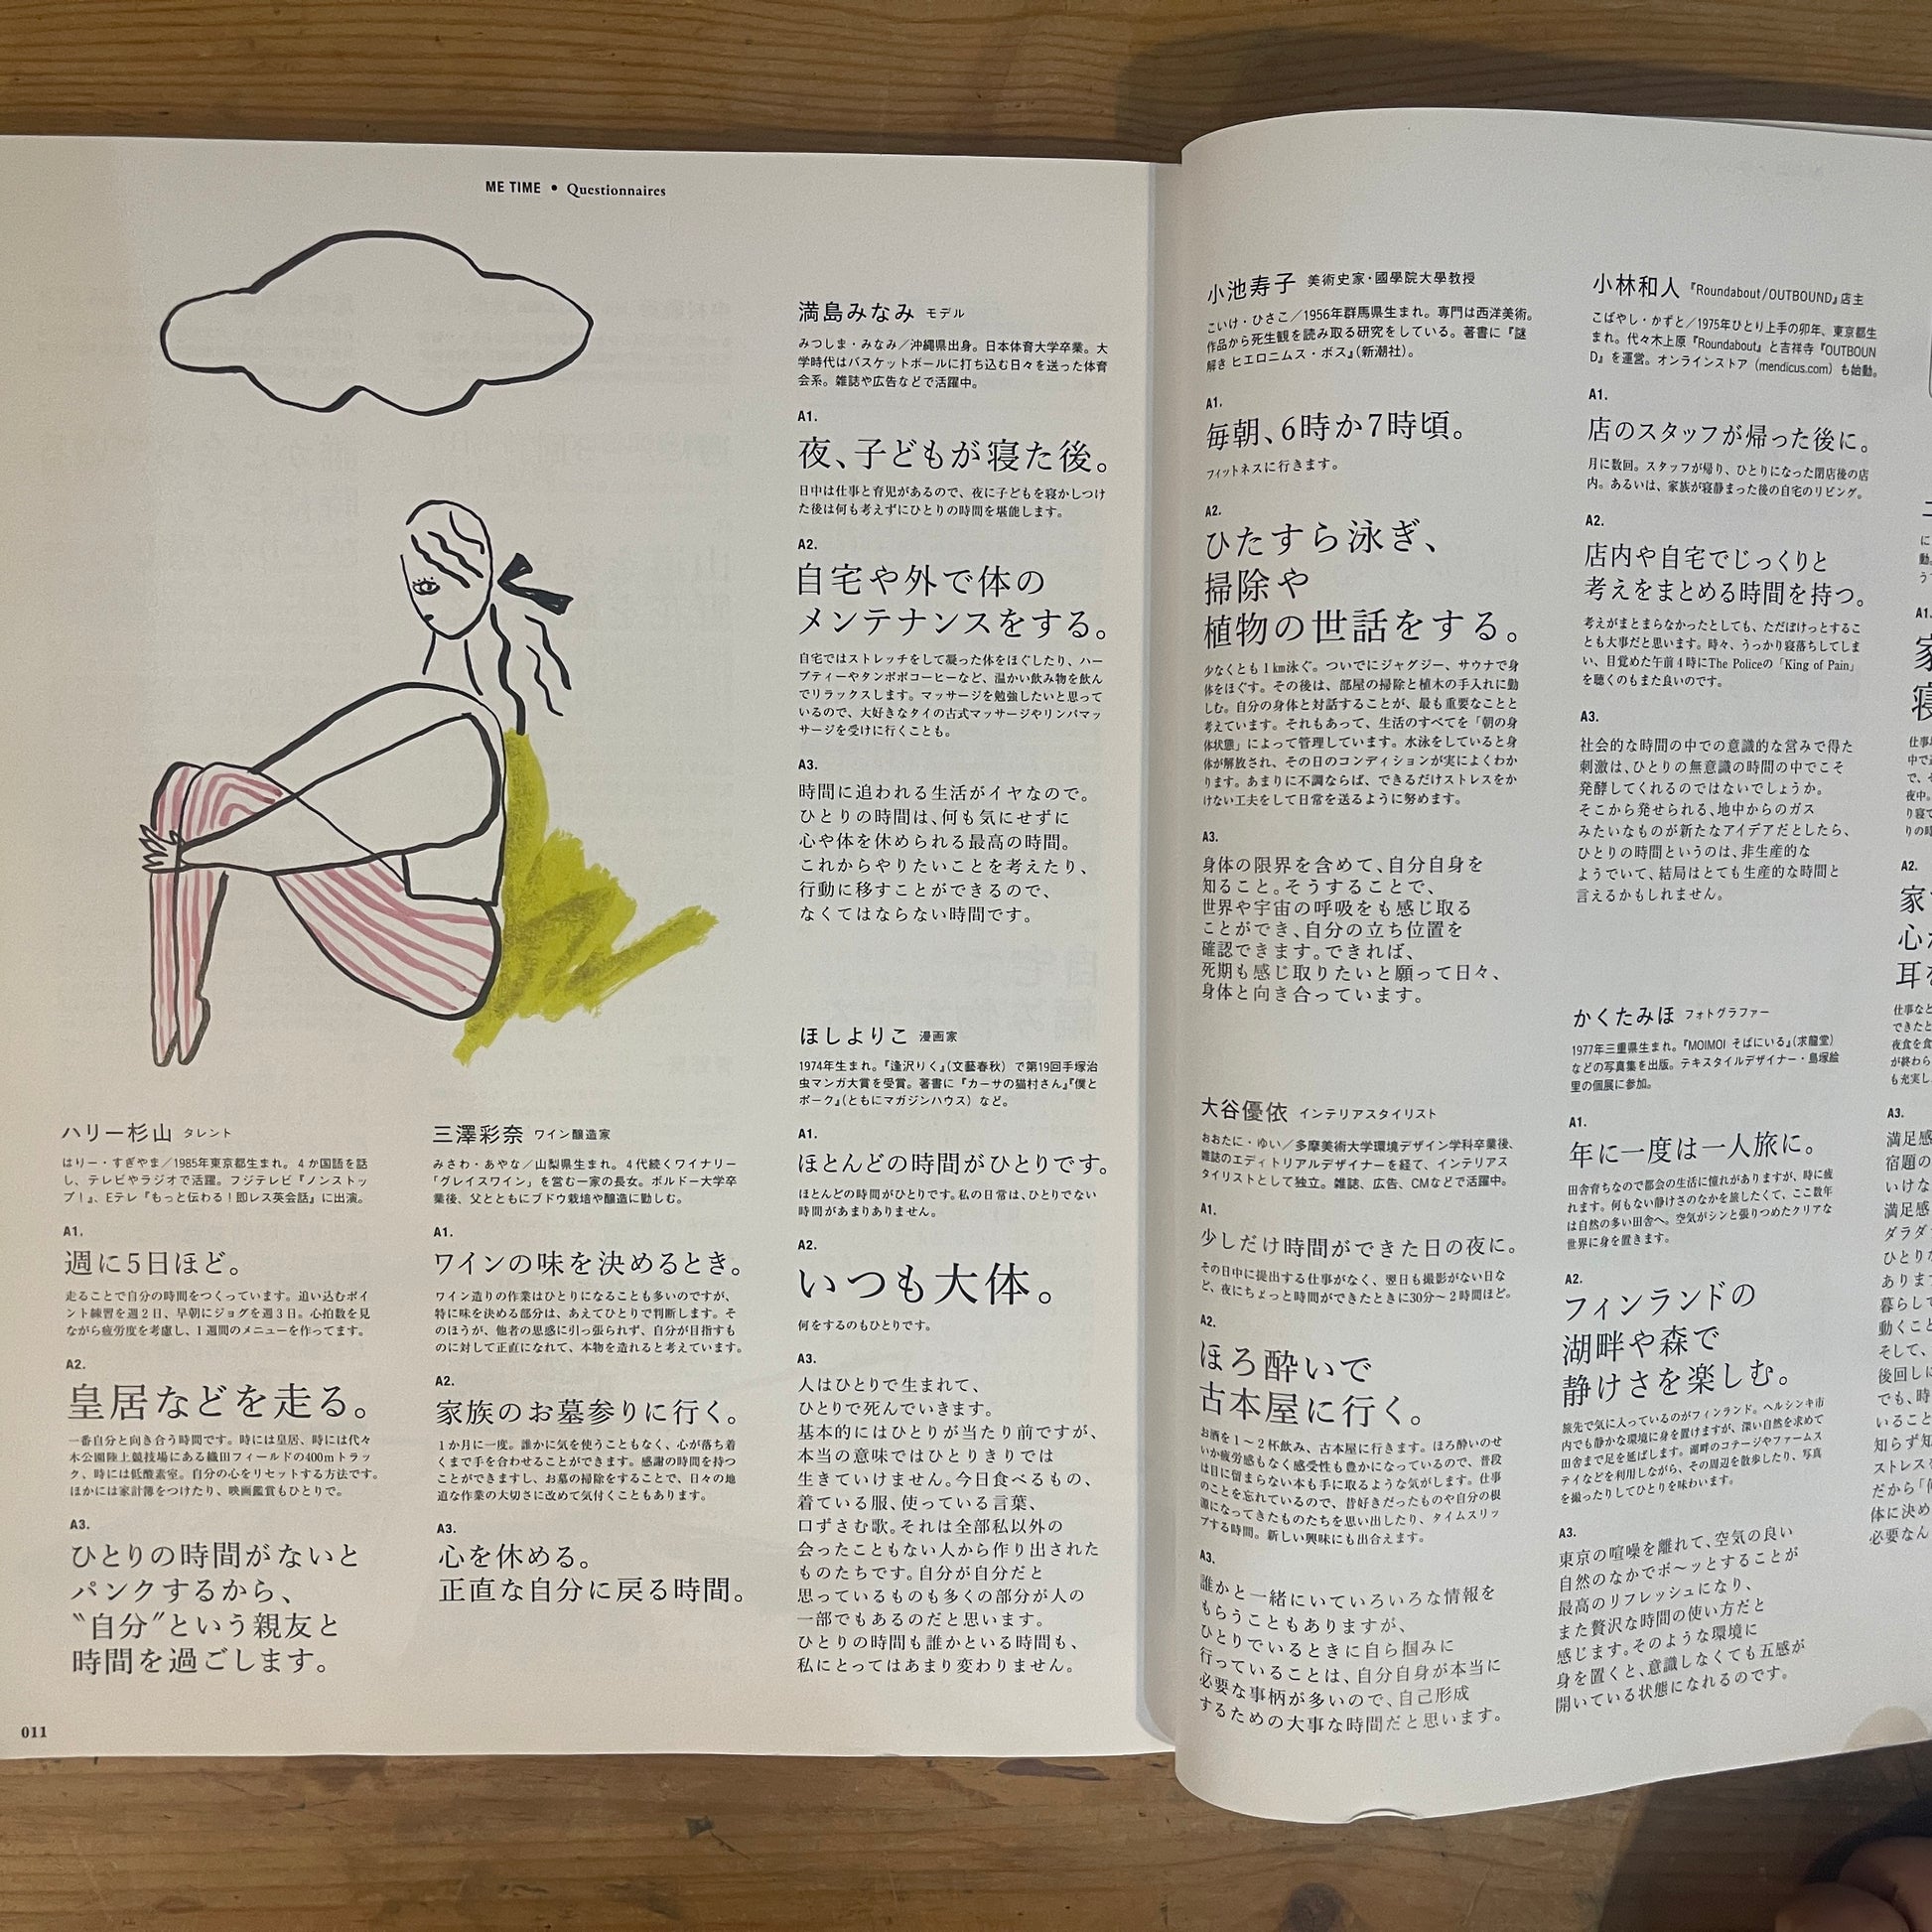 ME TIME • Questionnaires
ハリー杉山 タレント
はりー・すぎやま／1985年東京都生まれ。4か国語を話
し、テレビやラジオで活躍。フジテレビ『ノンストッ
プ！』、Eテレ『もっと伝わる！即レス英会話』に出演。
A1.
週に5日ほど。
走ることで自分の時間をつくっています。追い込むポイ
ント練習を週2日、早朝にジョグを週3日。心拍数を見
ながら疲労度を考慮し、1週間のメニューを作ってます。
A2.
皇居などを走る。
一番自分と向き合う時間です。時には皇居、時には代々
木公園陸上競技場にある織田フィールドの400mトラッ
ク、時には低酸素室。自分の心をリセットする方法です。
ほかには家計簿をつけたり、映画鑑賞もひとりで。
A3.
ひとりの時間がないと
パンクするから、
〝自分〟という親友と
時間を過ごします。
011
三澤彩奈 ワイン醸造家
みさわ・あやな／山梨県生まれ。4代続くワイナリー
「グレイスワイン」を営む一家の長女。ボルドー大学卒
業後、父とともにブドウ栽培や醸造に勤しむ。
A1.
ワインの味を決めるとき。
ワイン造りの作業はひとりになることも多いのですが、
特に味を決める部分は、あえてひとりで判断します。そ
のほうが、他者の思惑に引っ張られず、自分が目指すも
のに対して正直になれて、本物を造れると考えています。
A2.
家族のお墓参りに行く。
1か月に一度。誰かに気を使うこともなく、心が落ち着
くまで手を合わせることができます。感謝の時間を持つ
ことができますし、お墓の掃除をすることで、日々の地
道な作業の大切さに改めて気付くこともあります。
A3.
心を休める。
正直な自分に戻る時間。
満島みなみ モデル
みつしま・みなみ／沖縄県出身。日本体育大学卒業。大
学時代はバスケットボールに打ち込む日々を送った体育
会系。雑誌や広告などで活躍中。
A1.
夜、子どもが寝た後。
日中は仕事と育児があるので、夜に子どもを寝かしつけ
た後は何も考えずにひとりの時間を堪能します。
A2.
自宅や外で体の
メンテナンスをする。
自宅ではストレッチをして凝った体をほぐしたり、ハー
ブティーやタンポポコーヒーなど、温かい飲み物を飲ん
でリラックスします。マッサージを勉強したいと思って
いるので、大好きなタイの古式マッサージやリンパマッ
サージを受けに行くことも。
A3.
時間に追われる生活がイヤなので。
ひとりの時間は、何も気にせずに
心や体を休められる最高の時間。
これからやりたいことを考えたり、
行動に移すことができるので、
なくてはならない時間です。
ほしよりこ 漫画家
1974年生まれ。『逢沢りく』（文藝春秋）で第19回手塚治
虫マンガ大賞を受賞。著書に『カーサの猫村さん』『僕と
ポーク』（ともにマガジンハウス）など。
A1.
ほとんどの時間がひとりです。
ほとんどの時間がひとりです。私の日常は、ひとりでない
時間があまりありません。
A2.
いつも大体。
何をするのもひとりです。
A3.
人はひとりで生まれて、
ひとりで死んでいきます。
基本的にはひとりが当たり前ですが、
本当の意味ではひとりきりでは
生きていけません。今日食べるもの、
着ている服、使っている言葉、
口ずさむ歌。それは全部私以外の
会ったこともない人から作り出された
ものたちです。自分が自分だと
思っているものも多くの部分が人の
一部でもあるのだと思います。
ひとりの時間も誰かといる時間も、
私にとってはあまり変わりません。
小池寿子 美術史家・國學院大學教授
こいけ・ひさこ／1956年群馬県生まれ。専門は西洋美術。
作品から死生観を読み取る研究をしている。著書に『謎
解き ヒエロニムス・ボス』（新潮社）。
A1.
毎朝、6時か7時頃。
フィットネスに行きます。
A2.
ひたすら泳ぎ、
掃除や
植物の世話をする。
少なくとも1km泳ぐ。ついでにジャグジー、サウナで身
体をほぐす。その後は、部屋の掃除と植木の手入れに勤
しむ。自分の身体と対話することが、最も重要なことと
考えています。それもあって、生活のすべてを「朝の身
体状態」によって管理しています。水泳をしていると身
体が解放され、その日のコンディションが実によくわか
ります。あまりに不調ならば、できるだけストレスをか
けない工夫をして日常を送るように努めます。
A3.
身体の限界を含めて、自分自身を
知ること。そうすることで、
世界や宇宙の呼吸をも感じ取る
ことができ、自分の立ち位置を
確認できます。できれば、
死期も感じ取りたいと願って日々、
身体と向き合っています。
大谷優依 インテリアスタイリスト
おおたに・ゆい／多摩美術大学環境デザイン学科卒業後、
雑誌のエディトリアルデザイナーを経て、インテリアス
タイリストとして独立。雑誌、広告、CMなどで活躍中。
A1.
少しだけ時間ができた日の夜に。
その日中に提出する仕事がなく、翌日も撮影がない日な
ど、夜にちょっと時間ができたときに30分〜2時間ほど。
A2.
ほろ酔いで
古本屋に行く。
お酒を1〜2杯飲み、古本屋に行きます。ほろ酔いのせ
いか疲労感もなく感受性も豊かになっているので、普段
は目に留まらない本も手に取るような気がします。仕事
のことを忘れているので、昔好きだったものや自分の根
源になってきたものたちを思い出したり、タイムスリッ
プする時間。新しい興味にも出合えます。
A3.
誰かと一緒にいていろいろな情報を
もらうこともありますが、
ひとりでいるときに自ら掴みに
行っていることは、自分自身が本当に
必要な事柄が多いので、自己形成
するための大事な時間だと思います。
小林和人 『Roundabout/OUTBOUND』店主
こばやし・かずと／1975年ひとり上手の卯年、東京都生
まれ。代々木上原『Roundabout』と吉祥寺『OUTBOUN
D』を運営。オンラインストア（mendicus.com）も始動。
A1.
店のスタッフが帰った後に。
月に数回。スタッフが帰り、ひとりになった閉店後の店
内。あるいは、家族が寝静まった後の自宅のリビング。
A2.
店内や自宅でじっくりと
考えをまとめる時間を持つ。
考えがまとまらなかったとしても、ただぼけっとするこ
とも大事だと思います。時々、うっかり寝落ちしてしま
い、目覚めた午前4時にThe Policeの「King of Pain」
を聴くのもまた良いのです。
A3.
社会的な時間の中での意識的な営みで得た
刺激は、ひとりの無意識の時間の中でこそ
発酵してくれるのではないでしょうか。
そこから発せられる、地中からのガス
みたいなものが新たなアイデアだとしたら、
ひとりの時間というのは、非生産的な
ようでいて、結局はとても生産的な時間と
言えるかもしれません。
かくたみほ フォトグラファー
1977年三重県生まれ。『MOIMOI そばにいる』（求龍堂）
などの写真集を出版。テキスタイルデザイナー・島塚絵
里の個展に参加。
A1.
年に一度は一人旅に。
田舎育ちなので都会の生活に憧れがありますが、時に疲
れます。何もない静けさのなかを旅したくて、ここ数年
は自然の多い田舎へ。空気がシンと張りつめたクリアな
世界に身を置きます。
A2.
フィンランドの
湖畔や森で
静けさを楽しむ。
旅先で気に入っているのがフィンランド。ヘルシンキ市
内でも静かな環境に身を置けますが、深い自然を求めて
田舎まで足を延ばします。湖畔のコテージやファームス
テイなどを利用しながら、その周辺を散歩したり、写真
を撮ったりしてひとりを味わいます。
A3.
東京の喧噪を離れて、空気の良い
自然のなかでボ〜ッとすることが
最高のリフレッシュになり、
また贅沢な時間の使い方だと
感じます。そのような環境に
身を置くと、意識しなくても五感が
開いている状態になれるのです。
A1.
A2.
A3.
満足感
宿題の
いけな
満足感
ダラダ
ひとりな
ありま
暮らして
動くこと
そして、
後回しに
でも、時
いること
知らず知
ストレス
体に決め
必要なん